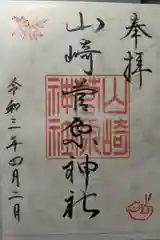 奉拝
山崎菅原神社
山崎
菅原
神社
令和三年四月二日